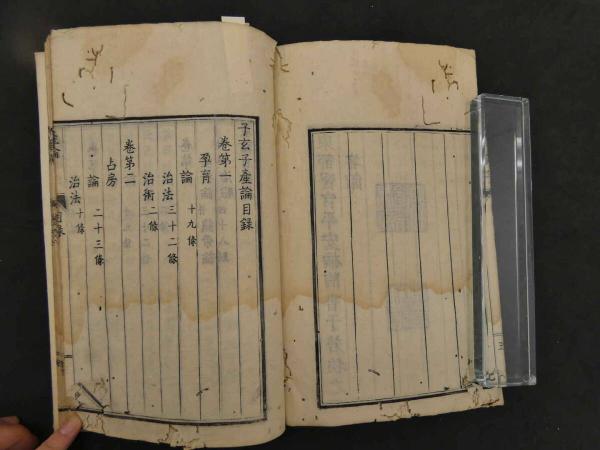 子玄子產論目錄
卷第一
孕育
論 十九條
治法三十二條
治術二條
卷第二
占房
論 二十三條
治法十條